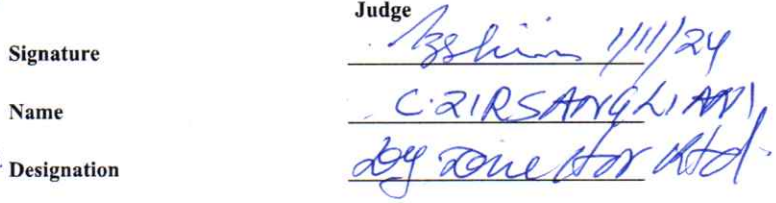 Judge
Signature 1/11/24
Name C. ZIRSANGLIANI
Designation Dy Director Rtd.